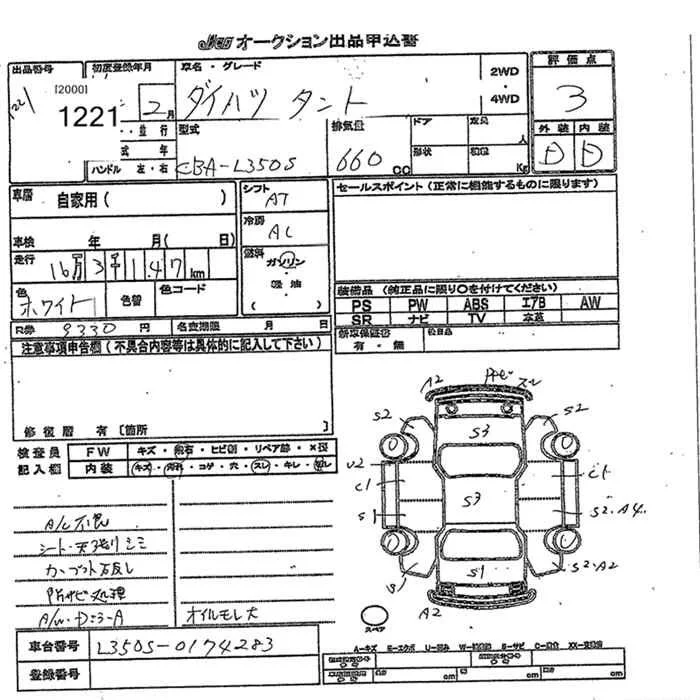 JU オークション出品申込書
出品番号
[2000]
1221
1221
初度登録年月
2月
並行
年
ハンドル 左・右
車名・グレード
ダイハツ タント
2WD
4WD
評価点
3
外装 内装
D D
型式
CBA-L350S
排気量
660 CC
ドア
定員
人
形状
積量
Kg
車歴
自家用( )
シフト
AT
セールスポイント(正常に機能するものに限ります)
車検 年 月( 日)
冷房
AC
走行
16万3千147km
燃料
ガソリン
軽油
( )
色
ホワイト
色替
色コード
装備品 (純正品に限り○を付けてください)
PS PW ABS エアB AW
SR ナビ TV 本革
R券 9330 円
名変期限 月 日
新車保証書
有・無
注意事項申告欄(不具合内容等は具体的に記入して下さい)
修復歴 有〔箇所 〕
検査員
記入欄
FW
キズ・飛石・ヒビ割・リペア跡・X要
内装
キズ・汚れ・コゲ・穴・スレ・キレ・
A/C不良
シート・天張りシミ
防サビ処理
オイルモレ大
A2
スレ
S2
S3
S2
U2
C1
C1
S3
S
S2・A4
S
S1
S2・A2
A2
スペア
A-キズ E-エクボ U-凹み W-補修跡 S-サビ C-腐食 XX-交換済
車台番号
L350S-0174283
登録番号
cm
cm
cm